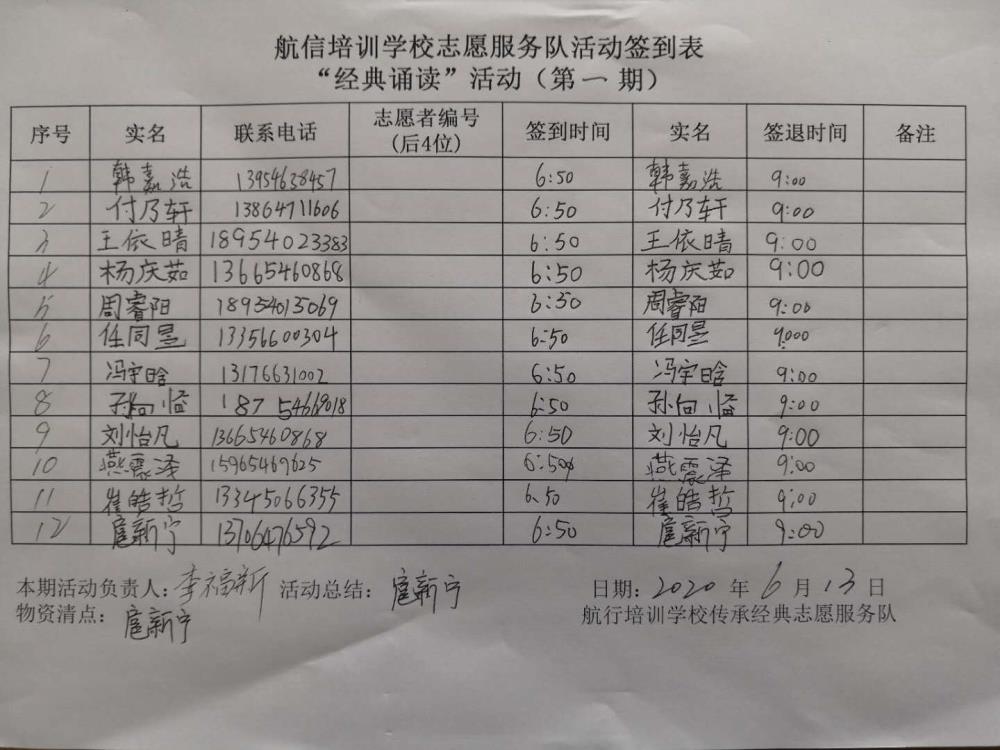 航信培训学校志愿服务队活动签到表
“经典诵读”活动（第一期）
序号 实名 联系电话 志愿者编号(后4位) 签到时间 实名 签退时间 备注
1 韩嘉浩 13954638457 6:50 韩嘉浩 9:00
2 付乃轩 13864711606 6:50 付乃轩 9:00
3 王依晴 18954023383 6:50 王依晴 9:00
4 杨庆茹 13665460868 6:50 杨庆茹 9:00
5 周睿阳 18954015069 6:50 周睿阳 9:00
6 任同昱 13356600304 6:50 任同昱 9:00
7 冯宇晗 13176631002 6:50 冯宇晗 9:00
8 孙向怡 18754669018 6:50 孙向怡 9:00
9 刘怡凡 13665460868 6:50 刘怡凡 9:00
10 燕震泽 15965469625 6:50 燕震泽 9:00
11 崔皓哲 13345066355 6.50 崔皓哲 9:00
12 扈新宁 13706476592 6:50 扈新宁 9:00
本期活动负责人：李福新 活动总结：扈新宁 日期：2020年6月13日
物资清点：扈新宁 航行培训学校传承经典志愿服务队